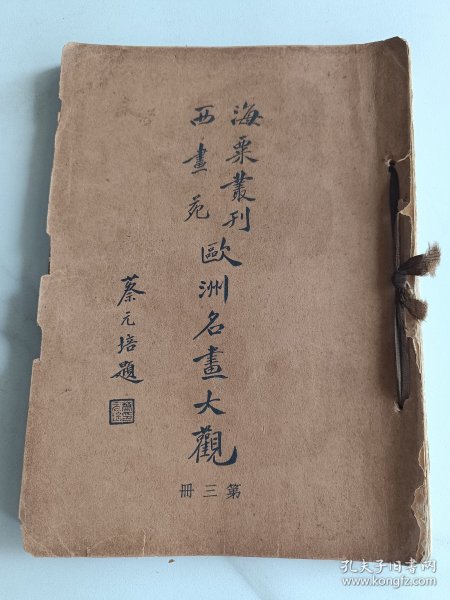 海粟叢刊
西畫苑
歐洲名畫大觀
蔡元培題
第三冊
孔夫子旧书网
www.kongfz.com